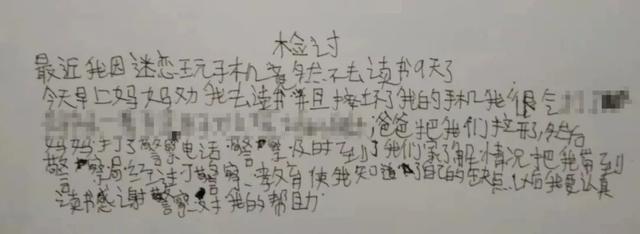 检讨
最近我因迷恋玩手机竟然不去读书9天了
今天早上妈妈劝我去读书并且摔坏了我的手机我很气
爸爸把我们拉开,然后
妈妈打了警察电话警察及时到了我们家了解情况把我带到
警察局经过了警察教育使我知道了自己的缺点以后我要认真
读书感谢警察对我的帮助